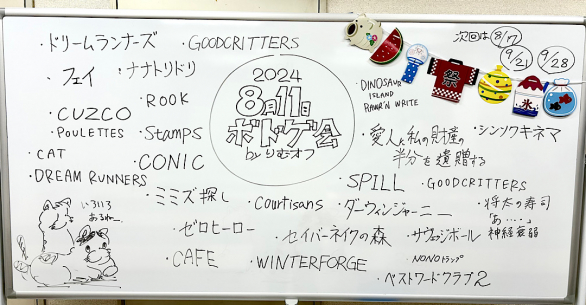 ・ドリームランナーズ
・GOODCRITTERS
次回は 8/17
9/21
9/28
祭
氷
・フェイ
・ナナトリドリ
2024
8月11日
ボドゲ会
by りむオフ
・DINOSAUR
ISLAND
RAWR'N WRITE
・CUZCO
・ROOK
・POULETTES
・Stamps
・愛人に私の財産の
半分を遺贈する
・シンソウキネマ
・CAT
・CONIC
・DREAM RUNNERS
・SPILL
・GOODCRITTERS
・ミミズ探し
・Courtisans
・ダーウィンジャーニー
・将太の寿司
「あ……」
神経衰弱
いろいろ
あるねー
・ゼロヒーロー
・セイバーネイクの森
・サヴェジボール
・CAFE
・WINTERFORGE
・NONOトランプ
・ベストワードクラブ2